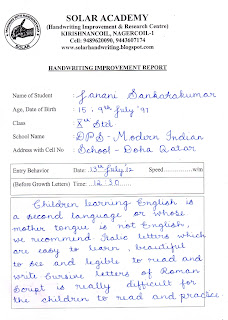 SOLAR ACADEMY
(Handwriting Improvement & Research Centre)
KIRISHNANCOIL, NAGERCOIL-1
Cell: 9489620090, 9443607174
www.solarhandwriting.blogspot.com
HANDWRITING IMPROVEMENT REPORT
Name of Student : Janani Sankarakumar
Age, Date of Birth : 15 : 9th July '97
Class : Xth Std
School Name : DPS - Modern Indian
Address with Cell No : School - Doha Qatar
Entry Behavior Date: 13th July '12 Speed...............w/m
(Before Growth Letters) Time: 12:30
Children learning English is
a second language or whose
mother tongue is not English,
we recommend Italic letters which
are easy to learn, beautiful
to see and legible to read and
write Cursive letters of Roman
Script is really difficult for
the children to read and practice.